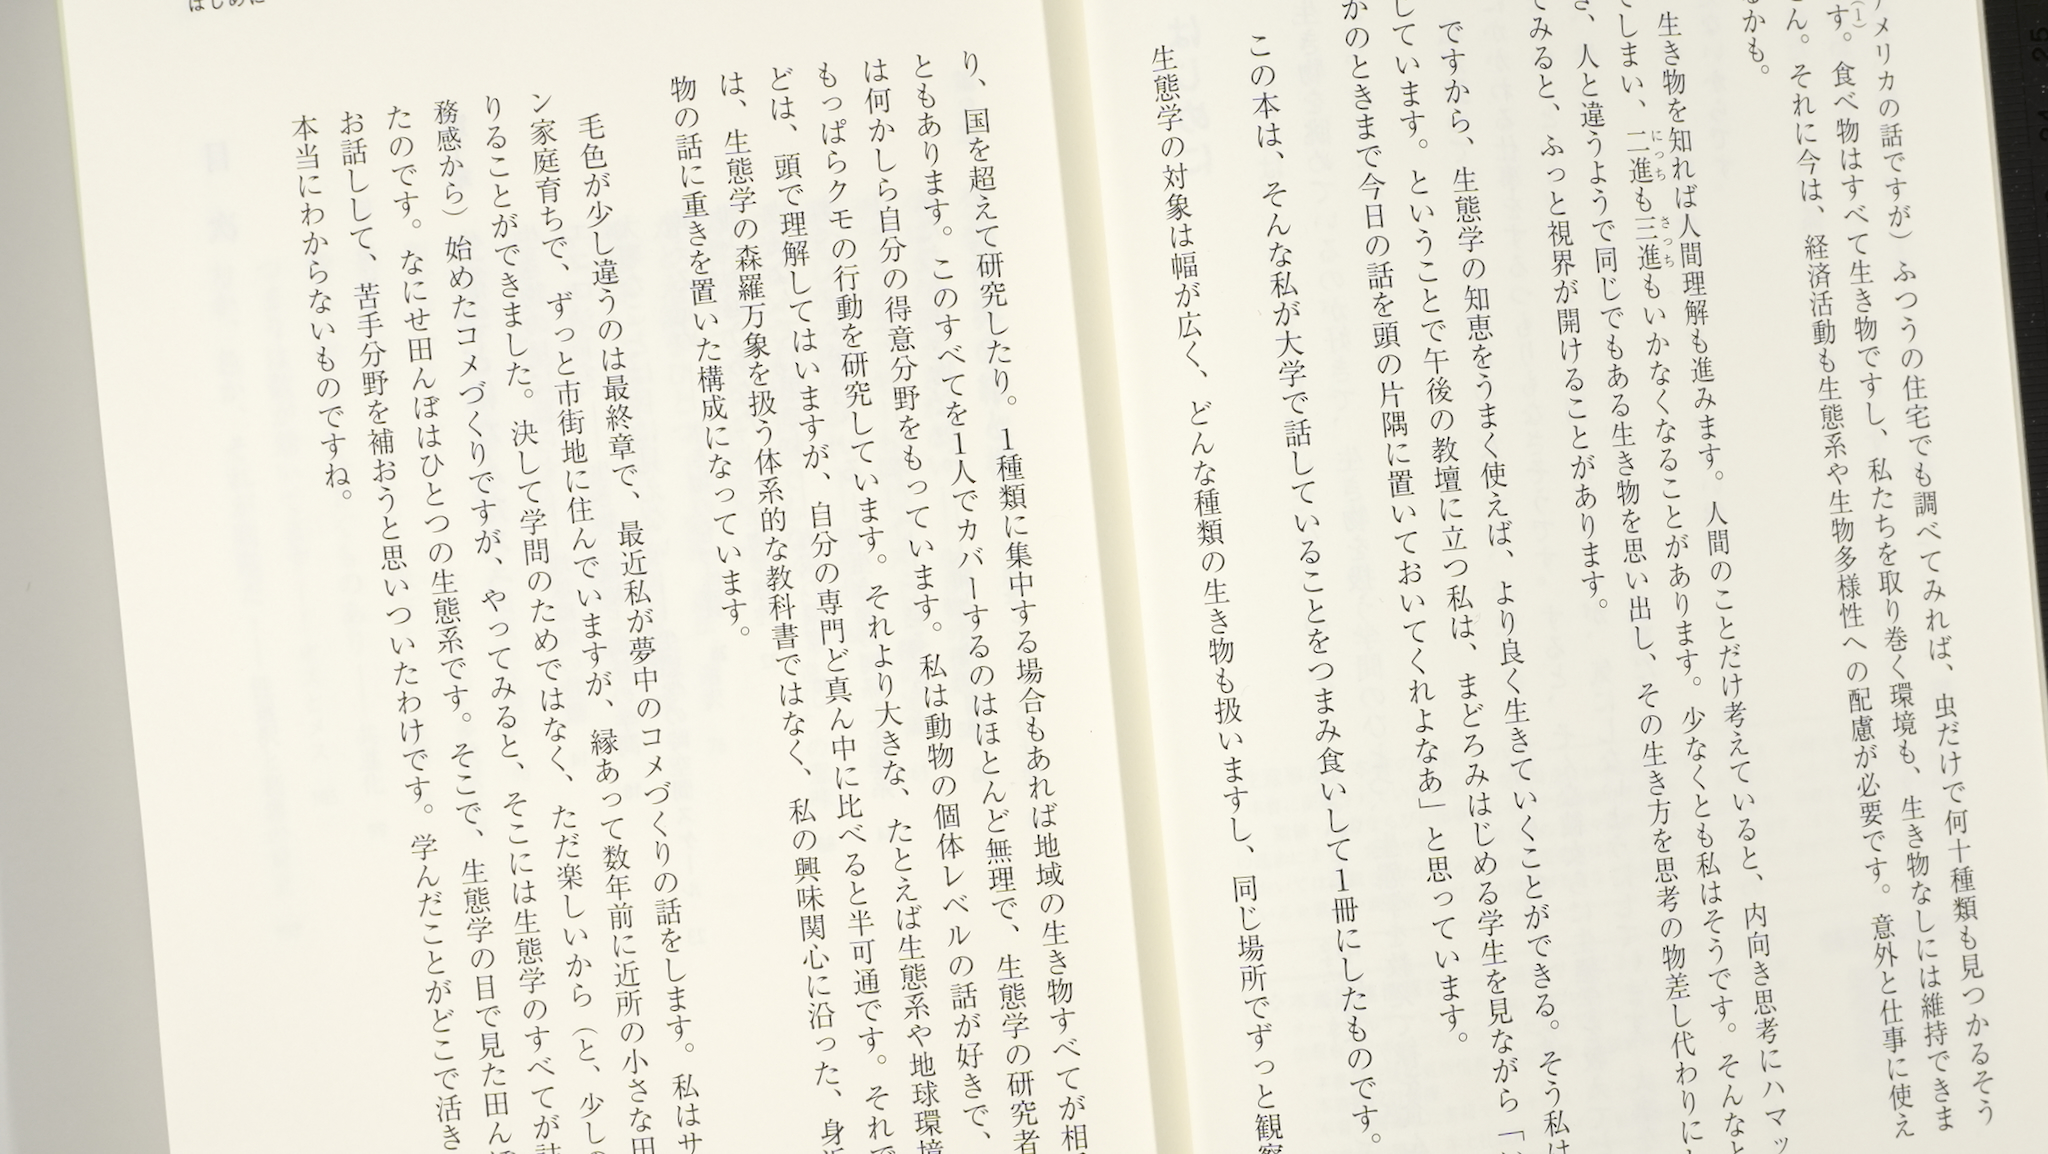 メリカの話ですが）ふつうの住宅でも調べてみれば、虫だけで何十種類も見つかるそう
す。(1)食べ物はすべて生き物ですし、私たちを取り巻く環境も、生き物なしには維持できま
ん。それに今は、経済活動も生態系や生物多様性への配慮が必要です。意外と仕事に使え
るかも。
生き物を知れば人間理解も進みます。人間のことだけ考えていると、内向き思考にハマッ
てしまい、二進も三進もいかなくなることがあります。少なくとも私はそうです。そんなと
き、人と違うようで同じでもある生き物を思い出し、その生き方を思考の物差し代わりに
てみると、ふっと視界が開けることがあります。
にっち
さっち
ですから、生態学の知恵をうまく使えば、より良く生きていくことができる。そう私は
しています。ということで午後の教壇に立つ私は、まどろみはじめる学生を見ながら「
かのときまで今日の話を頭の片隅に置いておいてくれよなあ」と思っています。
この本は、そんな私が大学で話していることをつまみ食いして1冊にしたものです。
生態学の対象は幅が広く、どんな種類の生き物も扱いますし、同じ場所でずっと観察
はじめに
り、国を超えて研究したり。1種類に集中する場合もあれば地域の生き物すべてが相
ともあります。このすべてを1人でカバーするのはほとんど無理で、生態学の研究者
は何かしら自分の得意分野をもっています。私は動物の個体レベルの話が好きで、
もっぱらクモの行動を研究しています。それより大きな、たとえば生態系や地球環境
どは、頭で理解してはいますが、自分の専門ど真ん中に比べると半可通です。それで
は、生態学の森羅万象を扱う体系的な教科書ではなく、私の興味関心に沿った、身近
物の話に重きを置いた構成になっています。
毛色が少し違うのは最終章で、最近私が夢中のコメづくりの話をします。私はサ
ン家庭育ちで、ずっと市街地に住んでいますが、縁あって数年前に近所の小さな田
りることができました。決して学問のためではなく、ただ楽しいから（と、少しの
務感から）始めたコメづくりですが、やってみると、そこには生態学のすべてが
たのです。なにせ田んぼはひとつの生態系です。そこで、生態学の目で見た田んぼ
お話しして、苦手分野を補おうと思いついたわけです。学んだことがどこで活き
本当にわからないものですね。